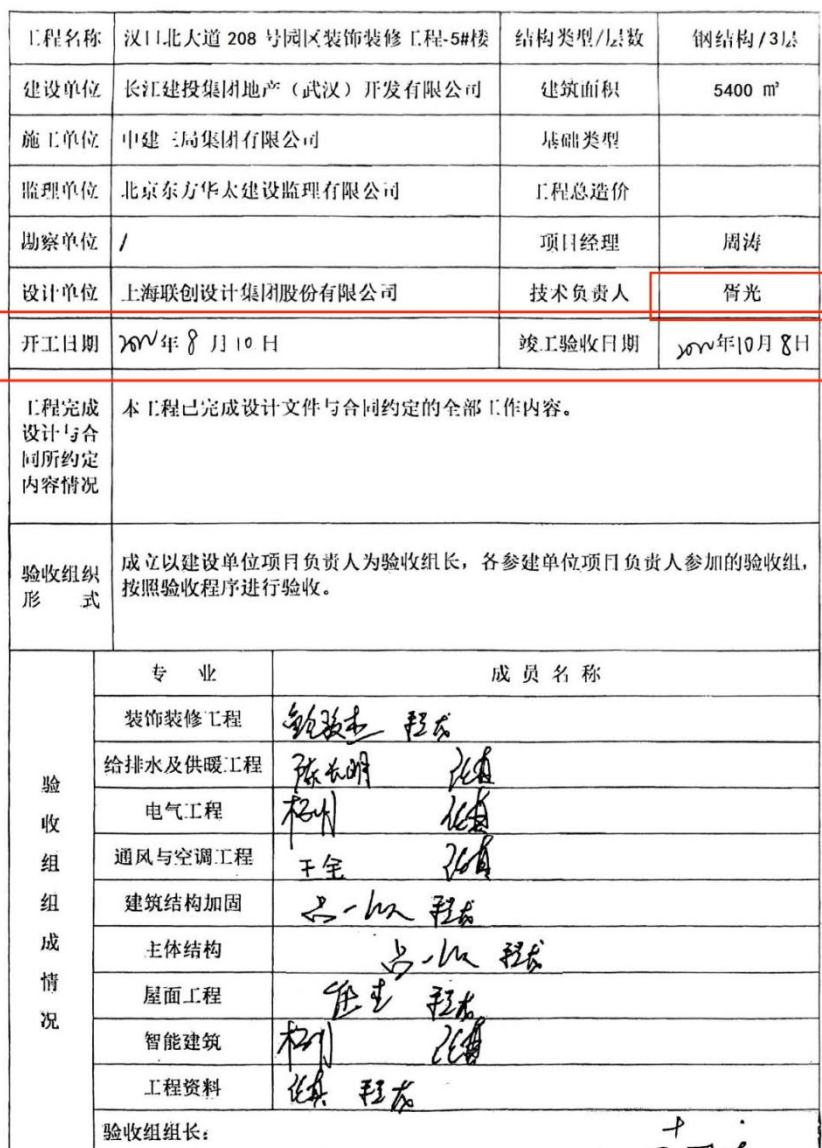 工程名称 汉口北大道 208 号园区装饰装修工程-5#楼 结构类型/层数 钢结构/3层
建设单位 长江建投集团地产（武汉）开发有限公司 建筑面积 5400 ㎡
施工单位 中建三局集团有限公司 基础类型
监理单位 北京东方华太建设监理有限公司 工程总造价
勘察单位 / 项目经理 周涛
设计单位 上海联创设计集团股份有限公司 技术负责人 胥光
开工日期 年 8 月 10 日 竣工验收日期 年10月8日
工程完成
设计与合
同所约定
内容情况
本工程已完成设计文件与合同约定的全部工作内容。
验收组织
形 式
成立以建设单位项目负责人为验收组长，各参建单位项目负责人参加的验收组，
按照验收程序进行验收。
验收组组成情况
专 业 成 员 名 称
装饰装修工程 程成
给排水及供暖工程 陈长明
电气工程
通风与空调工程 王全
建筑结构加固 吕一 程成
主体结构 吕一 程成
屋面工程 程成
智能建筑
工程资料 程成
验收组组长：